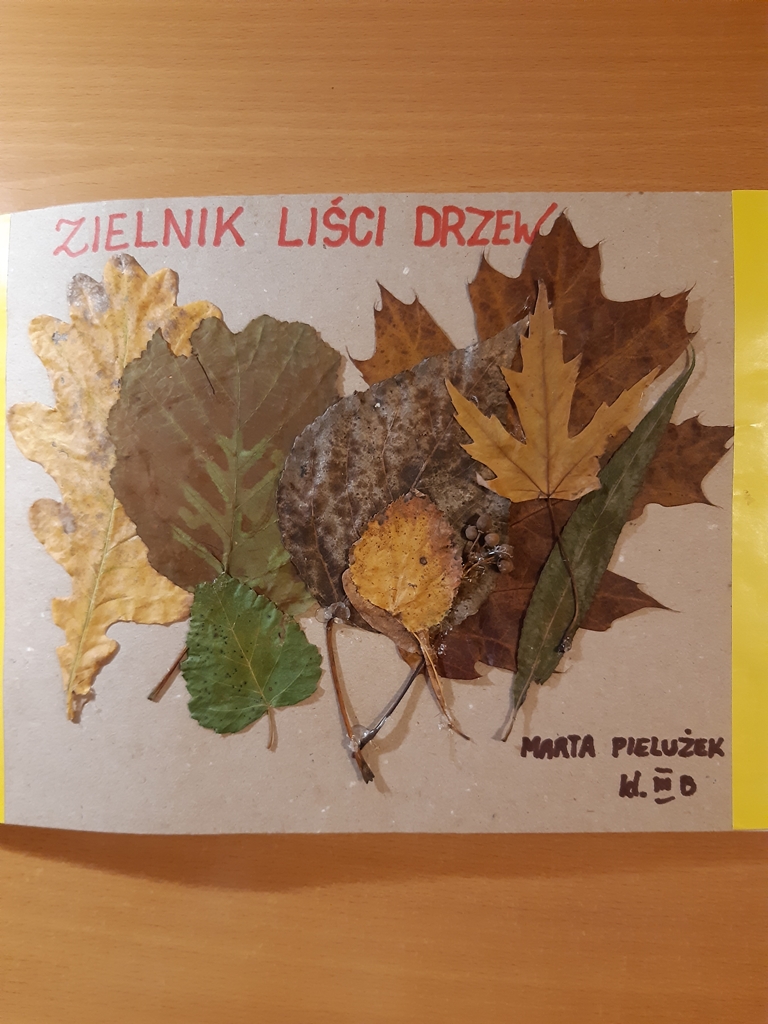 ZIELNIK LIŚCI DRZEW
MARTA PIELUŻEK
kl. III D